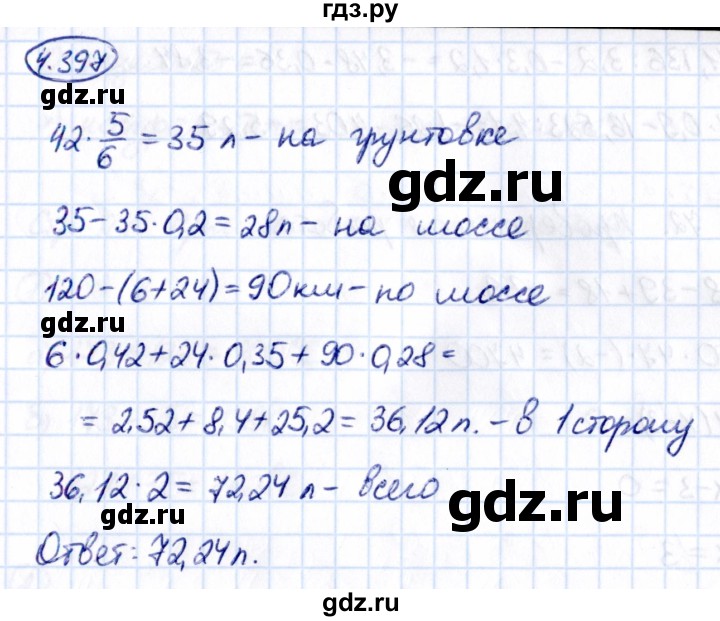 гдз.ру
4.397
gdz.ru
42 · 5/6 = 35 л - на грунтовке
gdz.ru
35 - 35 · 0,2 = 28л - на шоссе
120 - (6 + 24) = 90км - по шоссе
gdz.ru
6 · 0,42 + 24 · 0,35 + 90 · 0,28 =
= 2,52 + 8,4 + 25,2 = 36,12л. - в 1 сторону
36,12 · 2 = 72,24 л - всего
gdz.ru
gdz.ru
Ответ: 72,24л.
gdz.ru